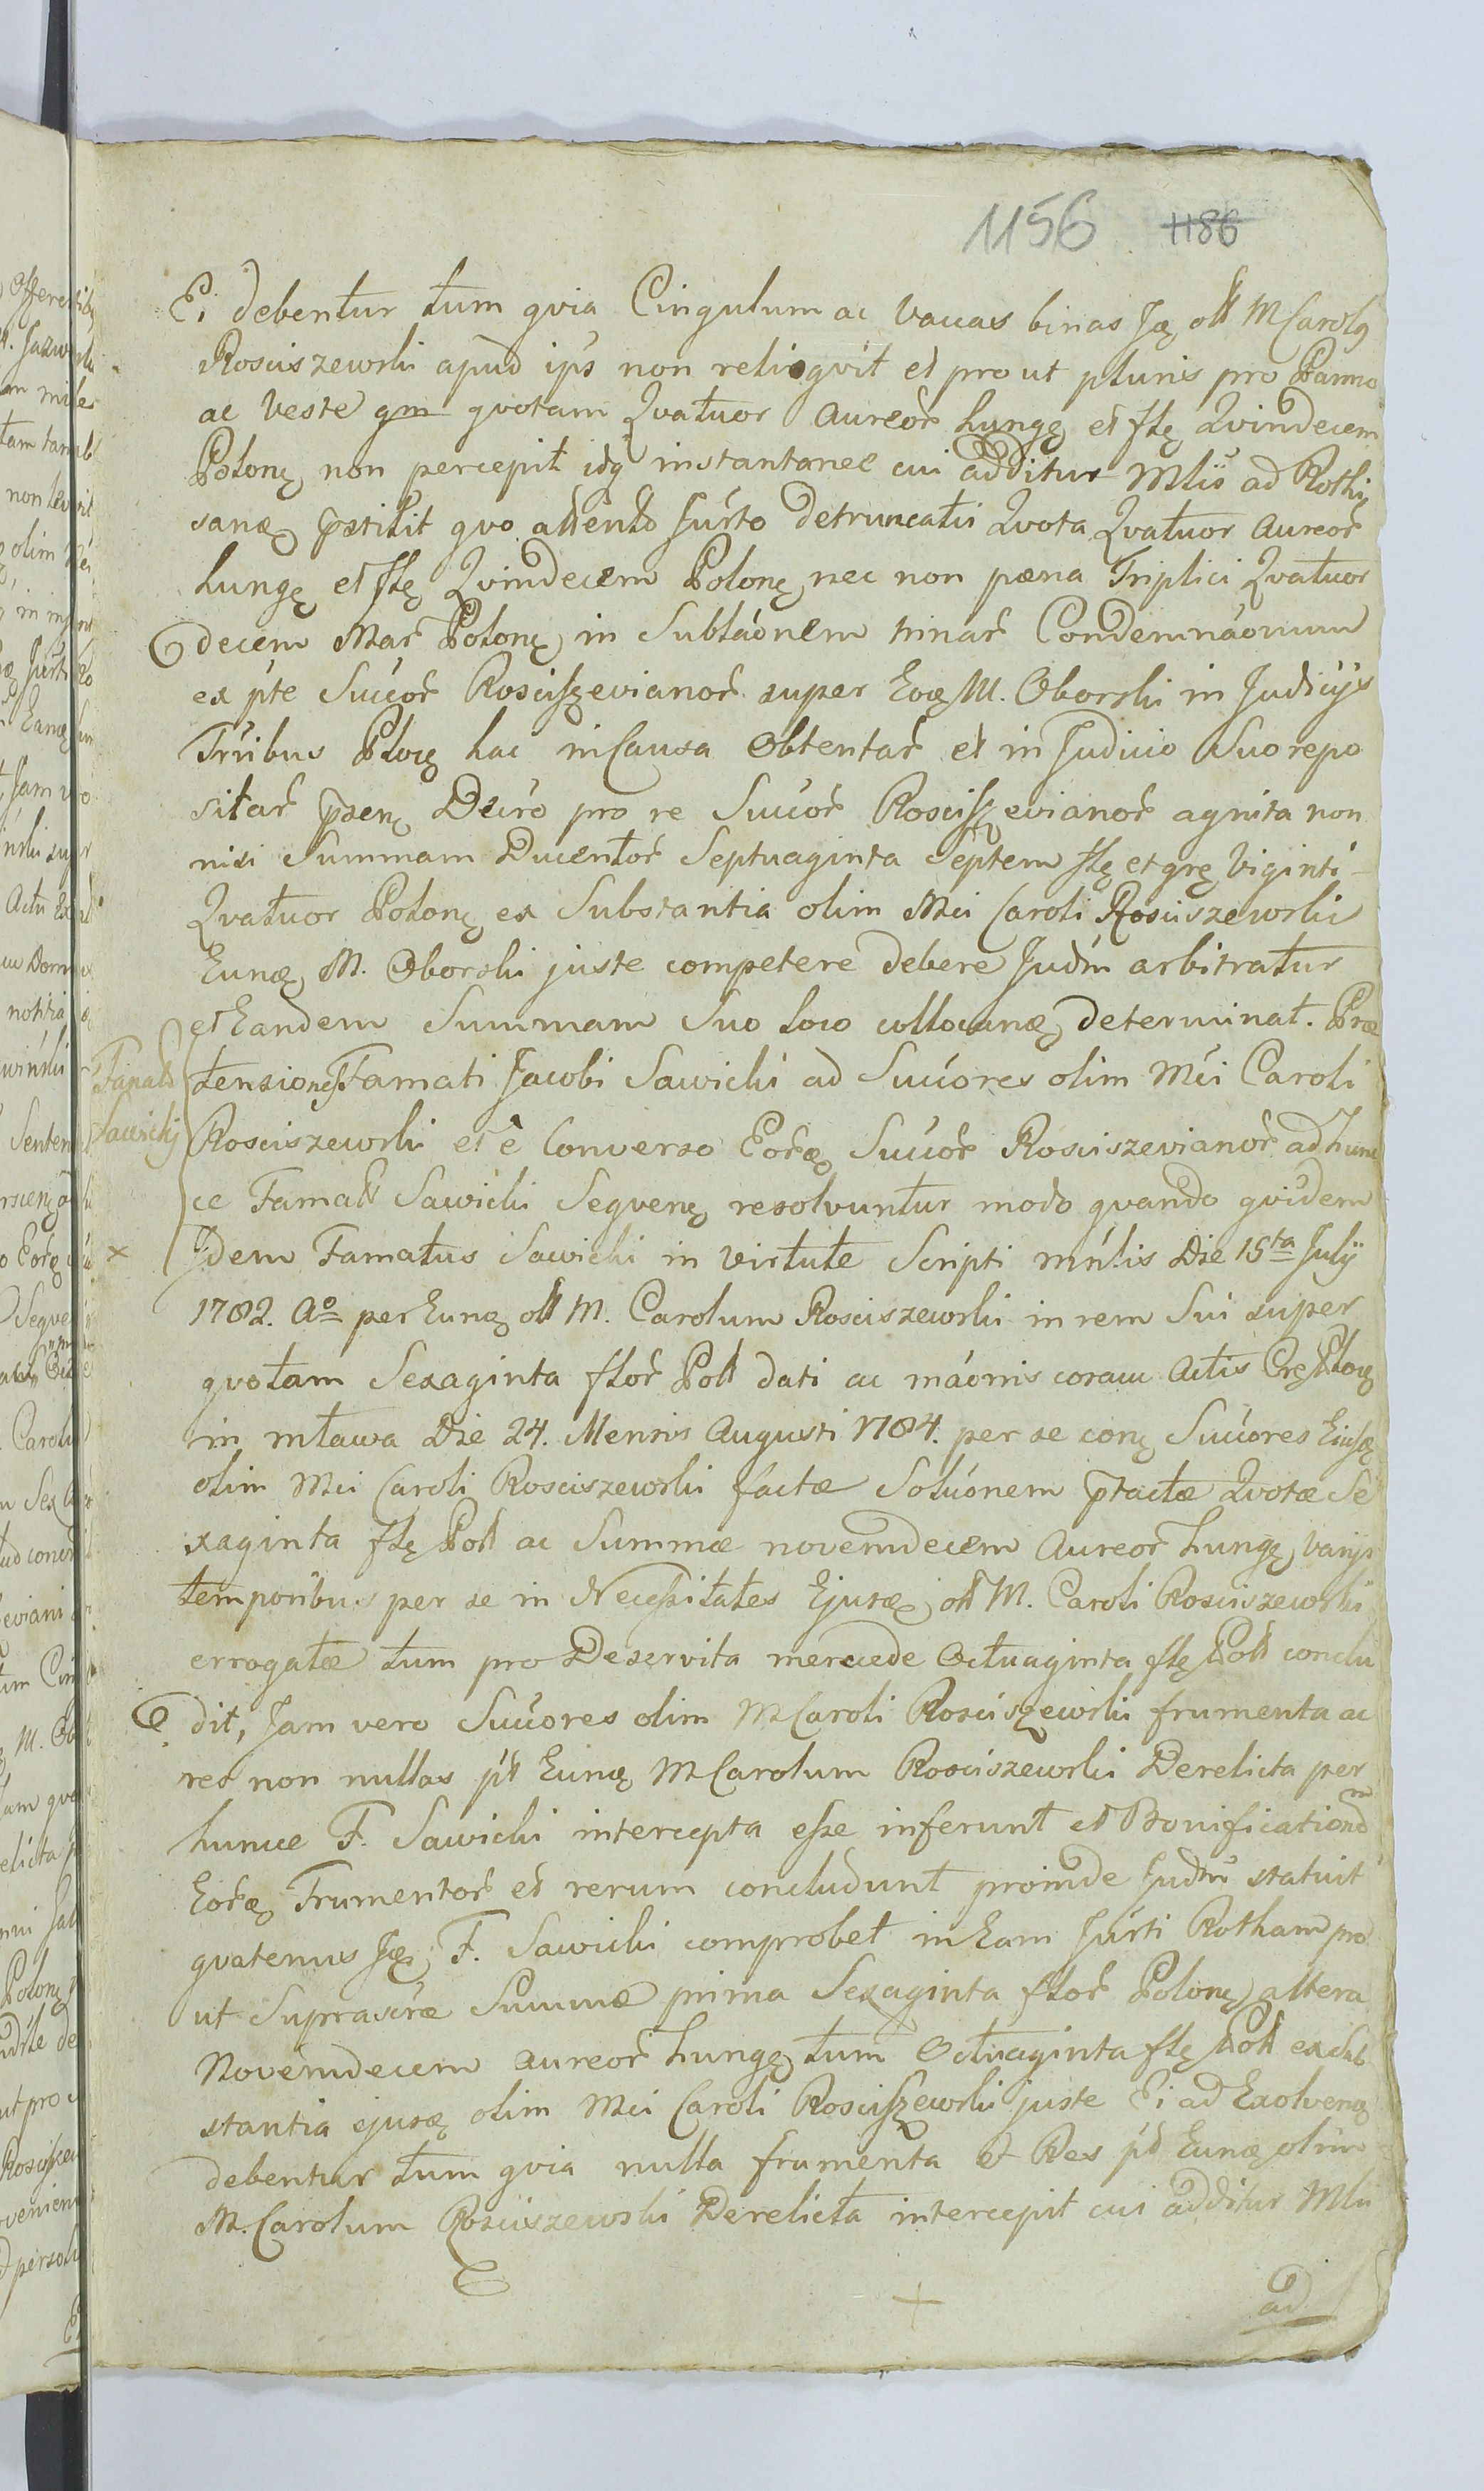 1156 1186
Ei debentur tum qvia Cingulum ac vaccas binas Jdę olt M Carolq
Rosciszewski apud ips non reliqvit et pro ut pluris pro Panno
ac Veste qm qvotam Qvatuor Aureor̃ hungę et flę Qvindecem
Polonę non percepit idq instantanee cui additur Mlis ad Rothę
sanæ p̃stitit qvo attento Jurto detruncatis Qvota Qvatuor Aureor̃
hungę et flę Qvindecem Polonę nec non pæna Triplici Qvatuor
decem Mar̃ Polonę in Sublaõnem trinar̃ Condemnaõnum
ex pte Sucõr̃ Rosciszevianor̃ super Eoę M. Oborski in Judicijs
Trĩbus Plocę hac in Causa Obtentar̃ et in Judicio Suo repo
sitar̃ p̃senę Decr̃o pro re Succõr̃ Rosciszevianor̃ agnita non
nisi Summam Ducentor̃ Septuaginta Septem flę et grę Viginti
Qvatuor Polonę ex Substantia olim Mci Caroli Rosciszewski
Eunæ M. Oborski juste competere debere Judm̃ arbitratur
et Eandem Summam Suo loco collocanę determinat. Præ
Famati tensiones Famati Jacobi Sawicki ad Succõres olim Mci Caroli
Sawicki Rosciszewski et è Converso Eor̃ę Succõr̃ Rosciszevianor̃ ad hunc
ce Famatt Sawicki Seqvenę resolvuntur modo qvando qvidem
Jdem Famatus Sawicki in virtute Scripti mñlis Die 15ta Julÿ
1782. Aº per Eunę olt M. Carolum Rosciszewski in rem Sui super
qvotam Sexaginta flor̃ Poll dati ac mãõnis coram Actis Crę Plocę
in Mława Die 24. Mensis Augusti 1784. per se conę Succõres Eiusdę
olim Mci Caroli Rosciszewski factæ Solũonem p̃tactæ Qvotæ Se
xaginta flę Poll ac Summæ novemdecem Aureor̃ hungę varijs
temporibus per se in Necessitates Ejusdę olt M. Caroli Rosciszewski
errogatæ tum pro Deservita mercede Octuaginta flę Poll conclu
dit, Jam vero Succõres olim M Caroli Rosciszewski frumenta ac
res non nullas pt Eunę M Carolum Rosciszewski Derelicta per
huncce F. Sawicki intercepta esse inferunt et Bonificationem
Eor̃ę Frumentor̃ et rerum concludunt proinde Judm̃ statuit
qvatenus Jdę F. Sawicki comprobet in Eam Jurti Rotham pro
ut Suprascr̃æ Summæ prima Sexaginta flor̃ Polonę altera
Novemdecem aureor̃ hungę tum Octuaginta flę Poll ex sub
stantia ejusdę olim Mci Caroli Rosciszewski juste Ei ad Exolvenę
debentur tum qvia nulla frumenta et Res pt Eunę olim
M. Carolum Rosciszewski Derelicta intercepit cui additur Mlis
ad